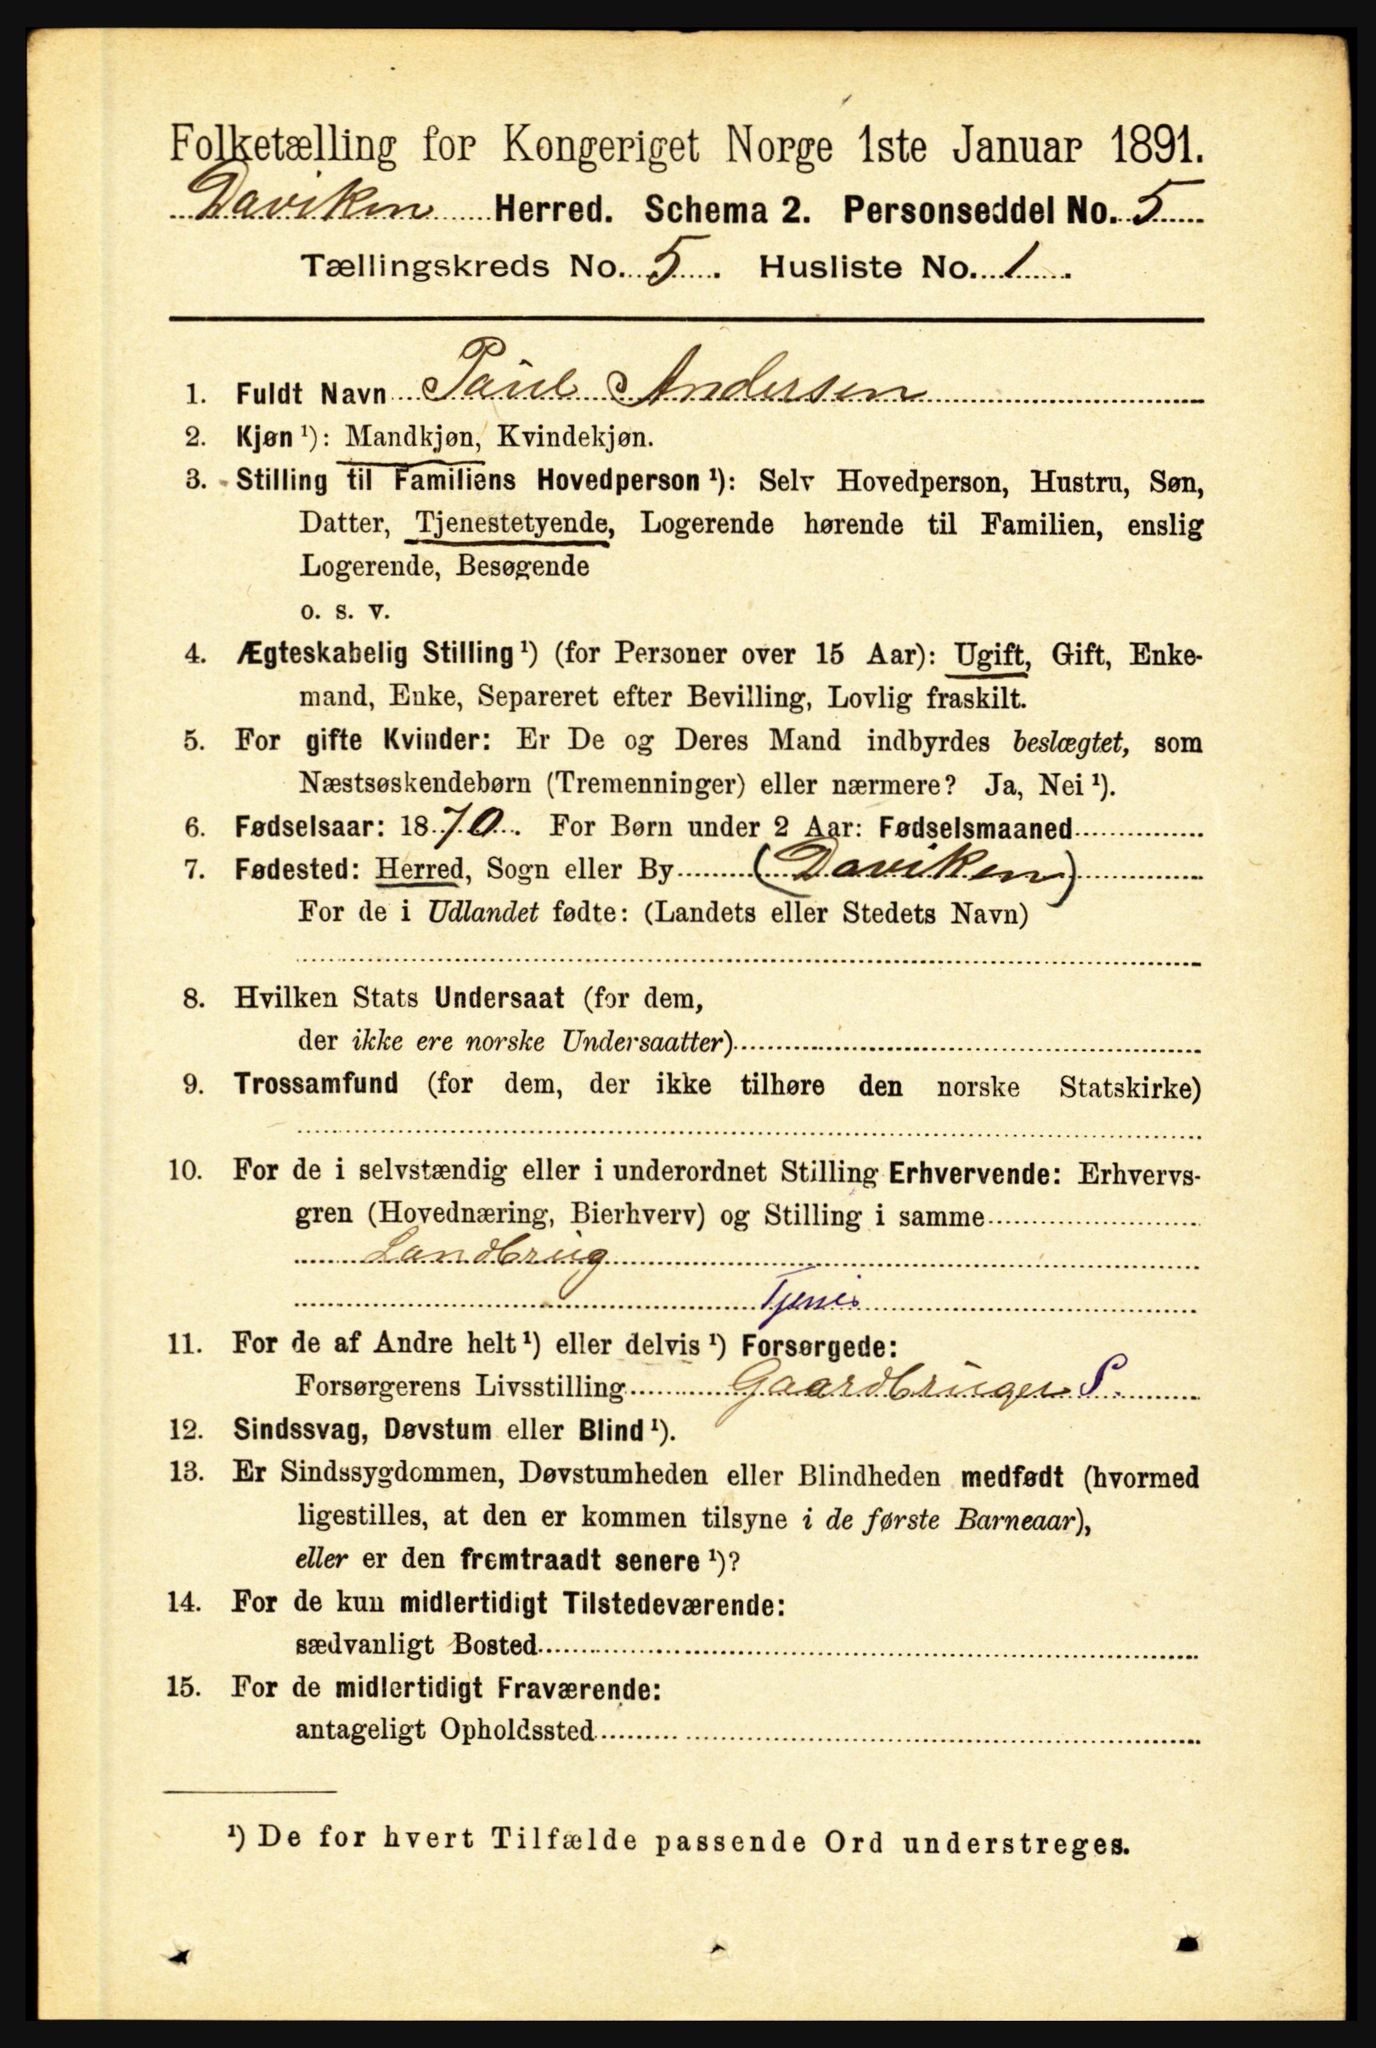 Folketælling for Kongeriget Norge 1ste Januar 1891.
Daviken Herred. Schema 2. Personseddel No. 5
Tællingskreds No. 5. Husliste No. 1.
1. Fuldt Navn Paul Andersen
2. Kjøn ¹): Mandkjøn, Kvindekjøn.
3. Stilling til Familiens Hovedperson ¹): Selv Hovedperson, Hustru, Søn,
Datter, Tjenestetyende, Logerende hørende til Familien, enslig
Logerende, Besøgende
o. s. v.
4. Ægteskabelig Stilling ¹) (for Personer over 15 Aar): Ugift, Gift, Enke-
mand, Enke, Separeret efter Bevilling, Lovlig fraskilt.
5. For gifte Kvinder: Er De og Deres Mand indbyrdes beslægtet, som
Næstsøskendebørn (Tremenninger) eller nærmere? Ja, Nei ¹).
6. Fødselsaar: 1870. For Børn under 2 Aar: Fødselsmaaned
7. Fødested: Herred, Sogn eller By (Daviken)
For de i Udlandet fødte: (Landets eller Stedets Navn)
8. Hvilken Stats Undersaat (for dem,
der ikke ere norske Undersaatter)
9. Trossamfund (for dem, der ikke tilhøre den norske Statskirke)
10. For de i selvstændig eller i underordnet Stilling Erhvervende: Erhvervs-
gren (Hovednæring, Bierhverv) og Stilling i samme
Landbrug
11. For de af Andre helt ¹) eller delvis ¹) Forsørgede:
Forsørgerens Livsstilling Gaardbruger S.
12. Sindssvag, Døvstum eller Blind ¹).
13. Er Sindssygdommen, Døvstumheden eller Blindheden medfødt (hvormed
ligestilles, at den er kommen tilsyne i de første Barneaar),
eller er den fremtraadt senere ¹)?
14. For de kun midlertidigt Tilstedeværende:
sædvanligt Bosted
15. For de midlertidigt Fraværende:
antageligt Opholdssted
¹) De for hvert Tilfælde passende Ord understreges.